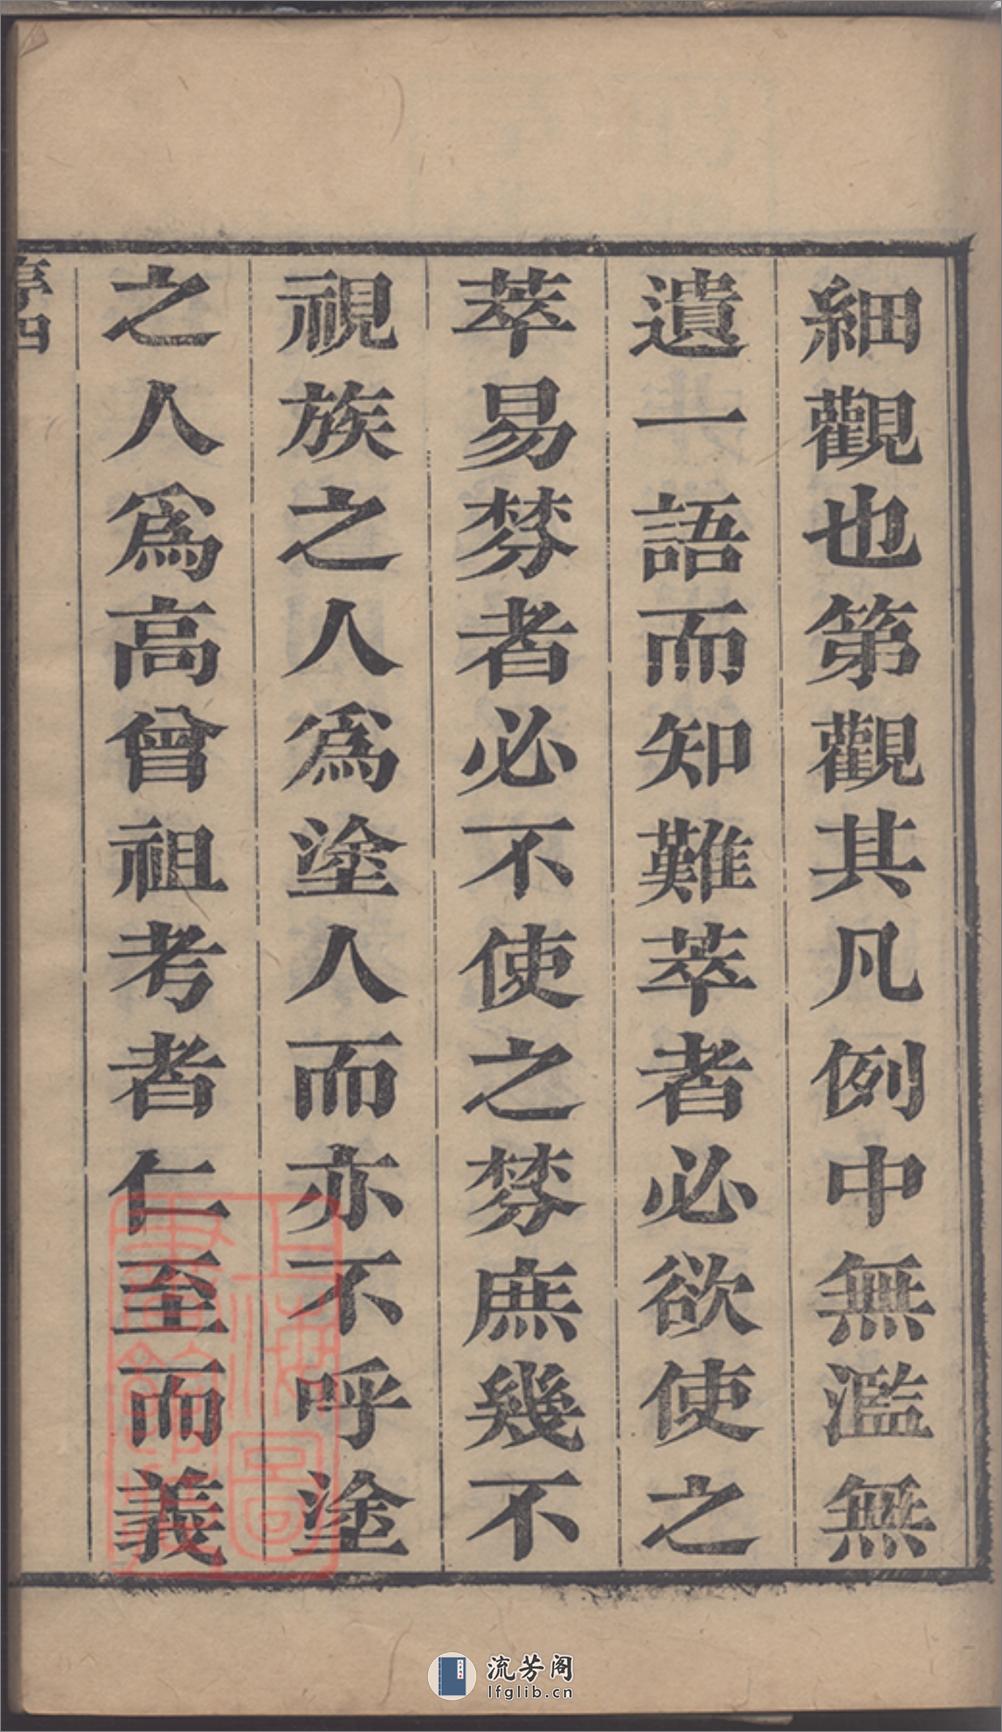 細觀也第觀其凡例中無濫無
遺一語而知難萃者必欲使之
萃易棼者必不使之棼庶幾不
視族之人爲塗人而亦不呼塗
之人爲高曾祖考者仁至而義
序四
上海圖書館藏
流芳阁
lfglib.cn